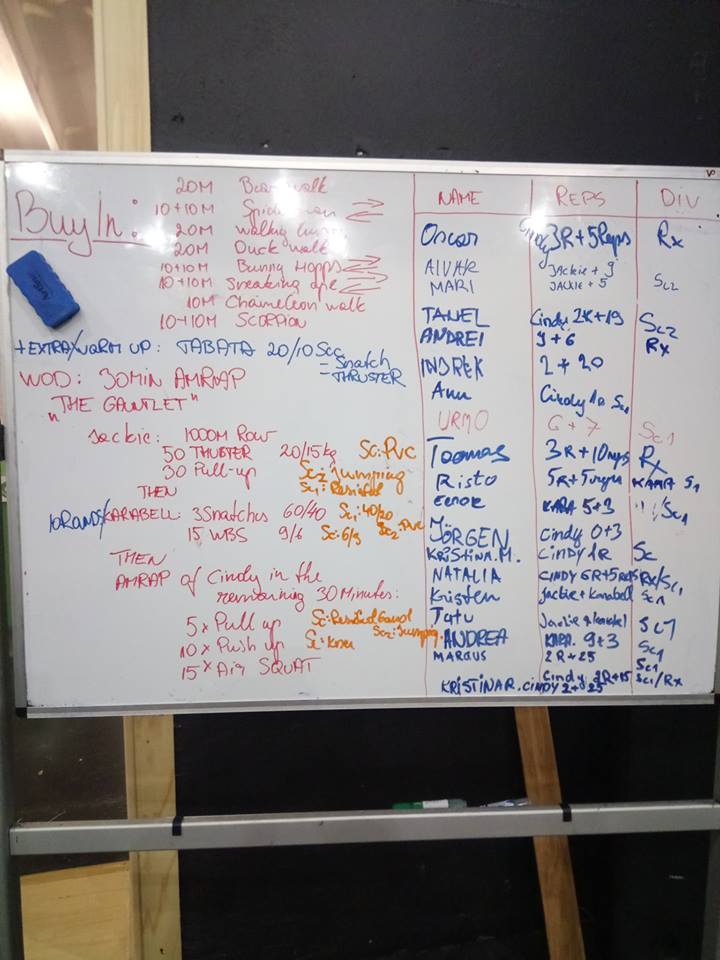 Buy In:
20M Bear walk
10+10M Spiderman
20M walking lunges
20M Duck walk
10+10M Bunny Hopps
10+10M Sneaking ape
10M Chameleon walk
10+10M SCORPION
+EXTRA/WARM UP: TABATA 20/10 Sec
= Snatch
THRUSTER
WOD: 30MIN AMRAP
"THE GAUNTLET"
Jackie: 1000M Row
50 THUSTER 20/15kg Sc: PVC
30 Pull-up Sc2: Jumping
Sc1: Resisted
THEN
10ROUNDS/KARABELL: 3 Snatches 60/40 Sc1: 40/20
Sc2: PVC
15 WBS 9/6 Sc: 6/3
THEN
AMRAP of Cindy in the
remaining 30 Minutes:
5x Pull up Sc: Resisted band
Sc2: Jumping
10x Push up Sc: Knee
15x Air SQUAT
NAME REPS DIV
Oscar Cindy 3R + 5 Reps Rx
AIVAR Jackie + 3
MARI JACKIE + 5 Sc2
TANEL Cindy 2R + 19 Sc2
ANDREI 9 + 6 Rx
INDREK 2 + 20
Annu Cindy 1R Sc1
URMO 6 + 7 Sc1
Toomas 3R + 10 reps Rx
Risto 5R + 5 reps KARA S1
KARA 5+3 Sc1
JÖRGEN Cindy 0+3
KRISTINA.M. CINDY 1R Sc
NATALIA CINDY 6R + 5 REPS Rx/Sc1
Kristen Jackie + Karabell Sc1
Tatu Jackie & karabel Sc1
ANDREA KARA. 9+3 Sc1
MARGUS 2R + 25 Sc1
Cindy 2R+15 Sc1/Rx
KRISTINA R. CINDY 2 + 25